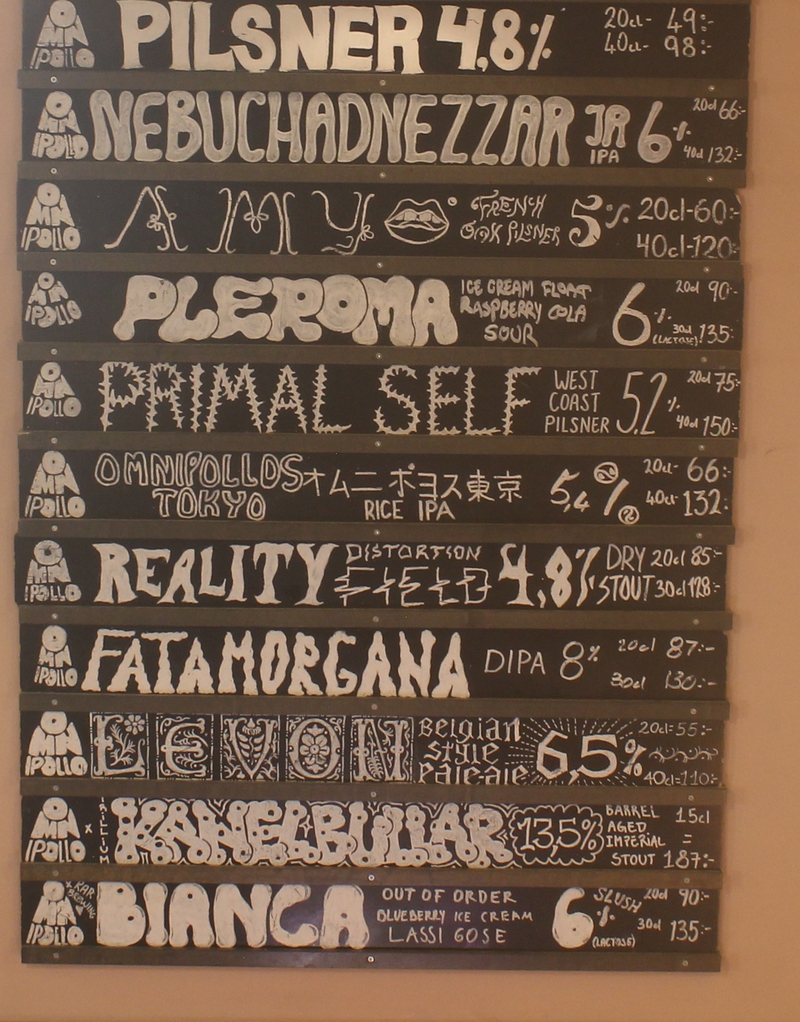 OMNIPOLLO PILSNER 4,8% 20cl- 49:-
40cl- 98:-
OMNIPOLLO NEBUCHADNEZZAR JR IPA 6% 20cl 66:-
40cl 132:-
OMNIPOLLO AMY FRENCH OAK PILSNER 5% 20cl-60:-
40cl-120:-
OMNIPOLLO PLEROMA ICE CREAM FLOAT 6% 20cl 90:-
RASPBERRY COLA
SOUR (LACTOSE) 30cl 135:-
OMNIPOLLO PRIMAL SELF WEST COAST PILSNER 5,2% 20cl 75:-
40cl 150:-
OMNIPOLLO OMNIPOLLOS オムニポヨス東京 5,4% 20cl- 66:-
TOKYO RICE IPA 40cl- 132:-
OMNIPOLLO REALITY DISTORTION FIELD 4,8% DRY 20cl 85:-
STOUT 30cl 128:-
OMNIPOLLO FATAMORGANA DIPA 8% 20cl 87:-
30cl 130:-
OMNIPOLLO LEVON Belgian style Pale ale 6,5% 20cl=55:-
40cl=110:-
OMNIPOLLO x TRILLIUM KANELBULLAR 13,5% BARREL AGED IMPERIAL STOUT 15cl = 187:-
OMNIPOLLO x KAR BREWING BIANCA OUT OF ORDER 6% SLUSH 20cl 90:-
BLUEBERRY ICE CREAM
LASSI GOSE (LACTOSE) 30cl 135:-